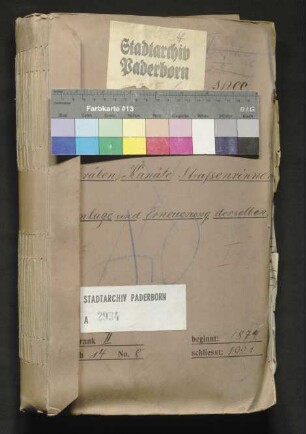 Stadtarchiv
Paderborn
Farbkarte #13
B.I.G.
räben, Kanäle, Strassenrinnen
nlage und Erneuerung derselben
STADTARCHIV PADERBORN
A 2934
rank II
beginnt: 1874
h 14 No. 8
schliesst: 1901